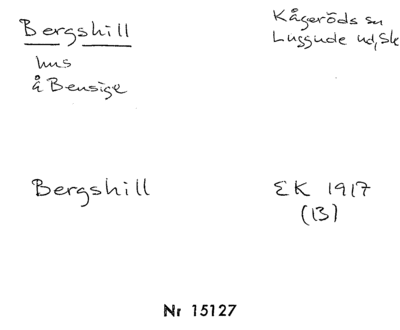 Bergshill
Kågeröds sn
Luggude hd, Sk
hus
å Bensige
Bergshill
EK 1917
(B)
Nr 15127